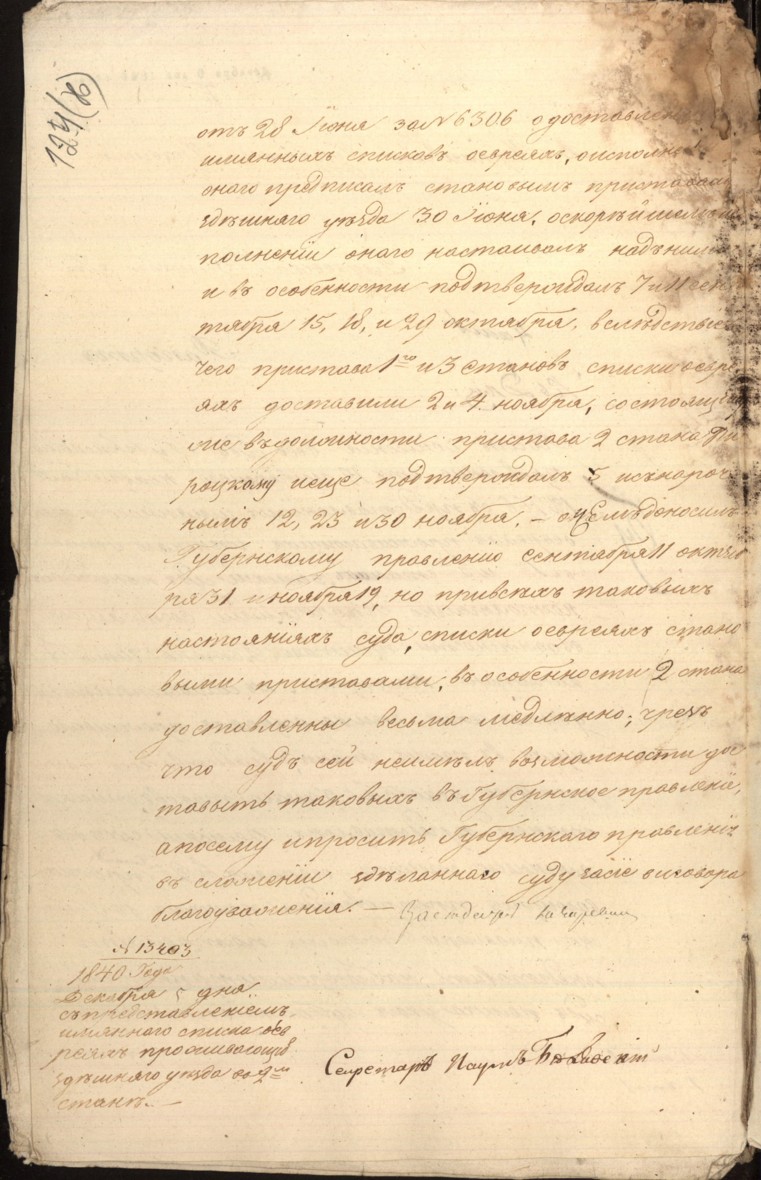 от 28 Июня за № 6306 о доставлении
имянныхъ списковъ о евреяхъ, о исполне
онаго предписалъ становымъ пристава
здѣшняго уѣзда 30 Июня, о скорѣйшем
полнении онаго настаивалъ надъними
и въ особенности подтверждалъ 7 и 11 сен
тября 15, 18, и 29 октября, вслѣдствіе
чего пристава 1го и 3 становъ списки о евре
яхъ доставили 2 и 4 ноября, состоящ
ме въ должности пристава 2 стана
роцкому и еще подтверждалъ 5 и съ нароч
нымъ 12, 23 и 30 ноября, — о чемъ доносилъ
Губернскому правлению сентября 11 октяб
ря 31 и ноября 19, но при всѣхъ таковыхъ
настоянияхъ суда, списки о евреяхъ стано
выми приставами, въ особенности 2 стана
доставленны весьма медленно; чрезъ
что судъ сей неимѣлъ возможности до
тавыть таковыхъ въ Губернское правление,
а посему и проситъ Губернского правления
въ сложении здѣланнаго суду
благоуважения. —
№ 13403
1840 Года
Декабря 5 дня
съ представлениемъ
имянного списка о ев
реяхъ проживающихъ
здѣшняго уѣзда во 2мъ
станѣ. —
Секретарь